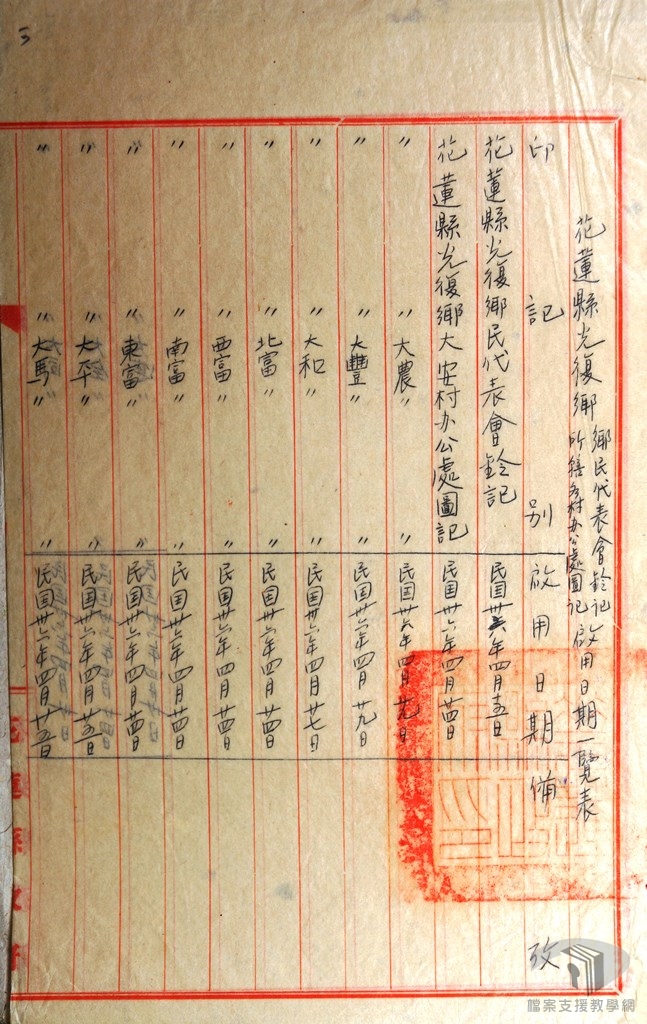 三
花蓮縣光復鄉鄉民代表會鈐記所轄各村办公處圖記啟用日期一覽表
印記別 啟用日期 備攷
花蓮縣光復鄉民代表會鈐記 民国卅六年四月十五日
花蓮縣光復鄉大安村办公處圖記 民国卅六年四月廿四日
〃 〃大農〃 〃 民国卅六年四月廿九日
〃 〃大豐〃 〃 民国卅六年四月廿九日
〃 〃大和〃 〃 民国卅六年四月廿七日
〃 〃北富〃 〃 民国卅六年四月廿四日
〃 〃西富〃 〃 民国卅六年四月廿四日
〃 〃南富〃 〃 民国卅六年四月廿四日
〃 〃東富〃 〃 民国卅六年四月廿四日
〃 〃大平〃 〃 民国卅六年四月廿五日
〃 〃大馬〃 〃 民国卅六年四月廿五日
花蓮縣政府
檔案支援教學網